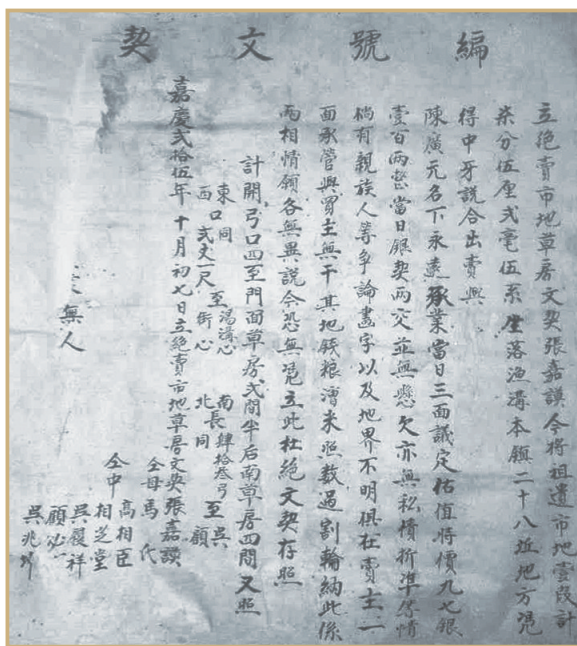 編號文契
立絕賣市地草房文契張嘉謨今將祖遺市地壹段計
柒分伍厘弍毫伍系坐落漁溝本鎮二十八近地方憑
得中牙説合出賣與
陳廣元名下永遠承業當日三面議定估值時價九七銀
壹百兩整當日銀契兩交並無懸欠亦無私債折準等情
倘有親族人等爭論畫字以及地界不明俱在賣主一
面承管與買主無干其地錢粮漕米照数過割輪納此係
兩相情願各無異説今恐無憑立此杜絕文契存照
計開弓口四至門面草房弍間半后南草房四間又照
東口同 至湯溝心 南 至吳
西 弍丈一尺 街心 北長同 肆拾叁弓 顧
嘉慶弍拾伍年十月初七日立絕賣市地草房文契張嘉謨
仝母馬氏
無人
仝中
高相臣
相芝堂
吳履祥
顧
吳兆